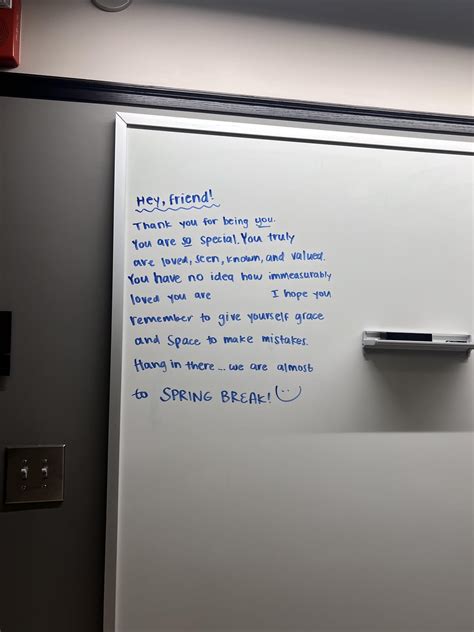 Hey, friend!
Thank you for being you.
You are so special. You truly
are loved, seen, known, and valued.
You have no idea how immeasurably
loved you are I hope you
remember to give yourself grace
and space to make mistakes.
Hang in there... we are almost
to SPRING BREAK!